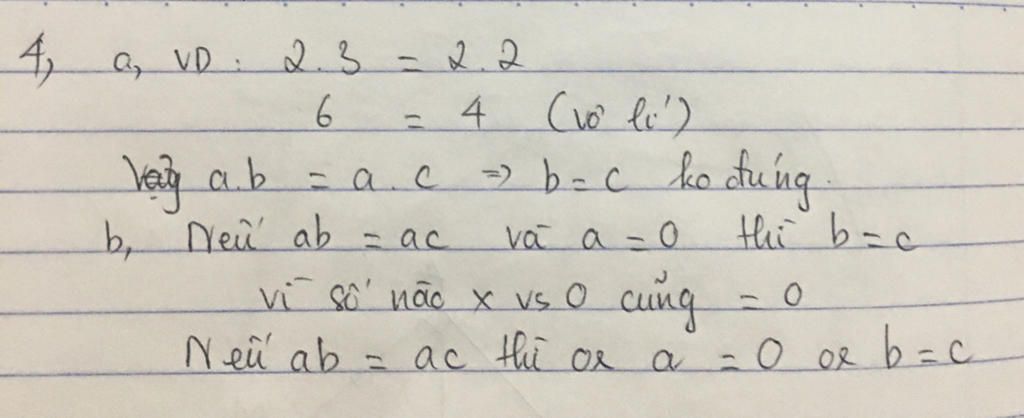 4, a, VD : 2.3 = 2.2
6 = 4 (vô lí)
Vậy a.b = a.c => b=c ko đúng.
b, Nếu ab = ac và a=0 thì b=c
vì số nào x vs 0 cũng = 0
Nếu ab = ac thì or a = 0 or b=c